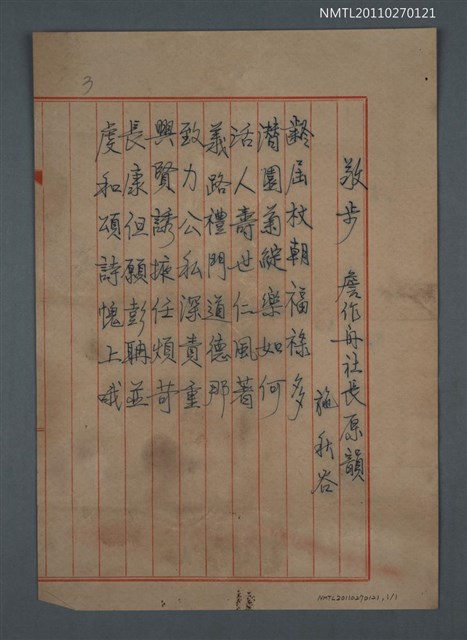 NMTL20110270121
3
敬步 詹作舟社長原韻
施秋谷
齡屆杖朝福祿多
潛園菊綻樂如何
活人壽世仁風著
義路禮門道德那
致力公私深責重
興賢誘掖任煩苛
長康但願彭聃並
虔和頌詩愧上哦
NMTL20110270121, 1/1